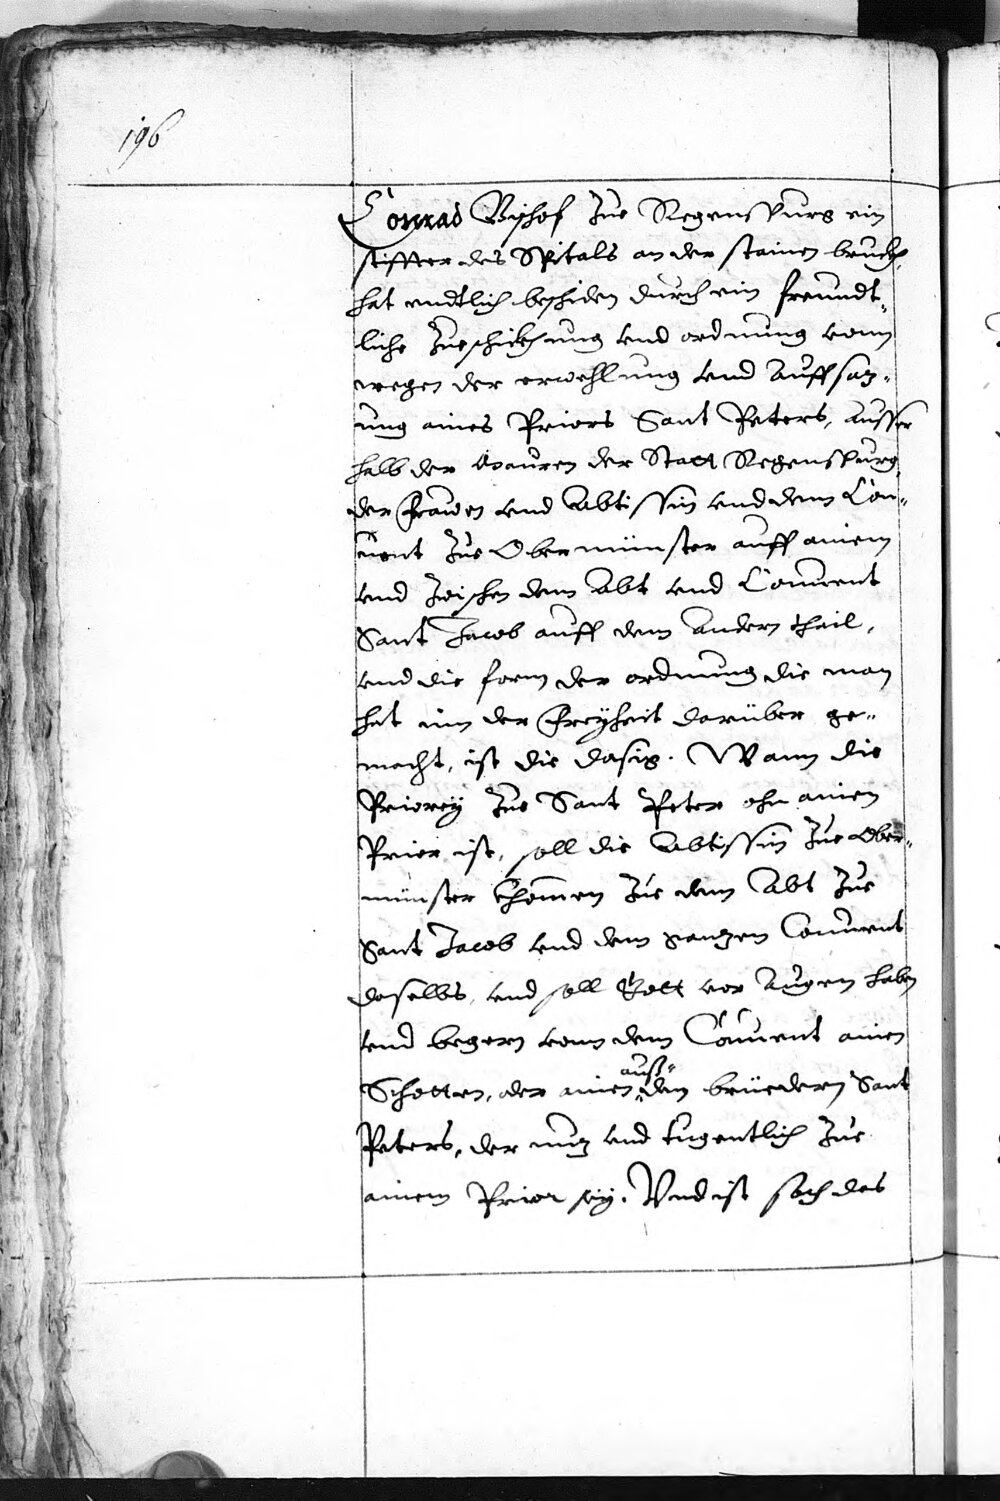 196
Conrad Bischof Zue Regenspurg ein
stiffter des Spitals an der stainen bruckh,
hat endtlich beschiden durch ein freundt„
liche Zueschickhung vnd ordnung vonn
wegen der erwehlung vnd Auffsaz„
ung aines Priors Sant Peters, ausser
halb der Mauren der Statt Regenspurg,
der Frawen vnd Abtissin vnd dem Con„
uent Zue Obermünster auff ainem
vnd Zwischen dem Abt vnd Conuent
Sant Jacob auff dem andern thail,
vnd die form der ordnung die man
hat inn der Freyheit darüber ge„
macht, ist die dasig. Wann die
Priorey Zue Sant Peter ohn ainen
Prior ist, soll die Abtissin Zue Ober„
münster khommen Zue dem Abt Zue
Sant Jacob vnd dem ganzen Conuent
daselbs, vnd soll Gott vor Augen haben
vnd begern vonn dem Conuent ainen
Schotten, oder ainen auß„ den brüedern Sant
Peters, der nuz vnd tugentlich Zue
ainem Prior sey. Vnd ist sach das